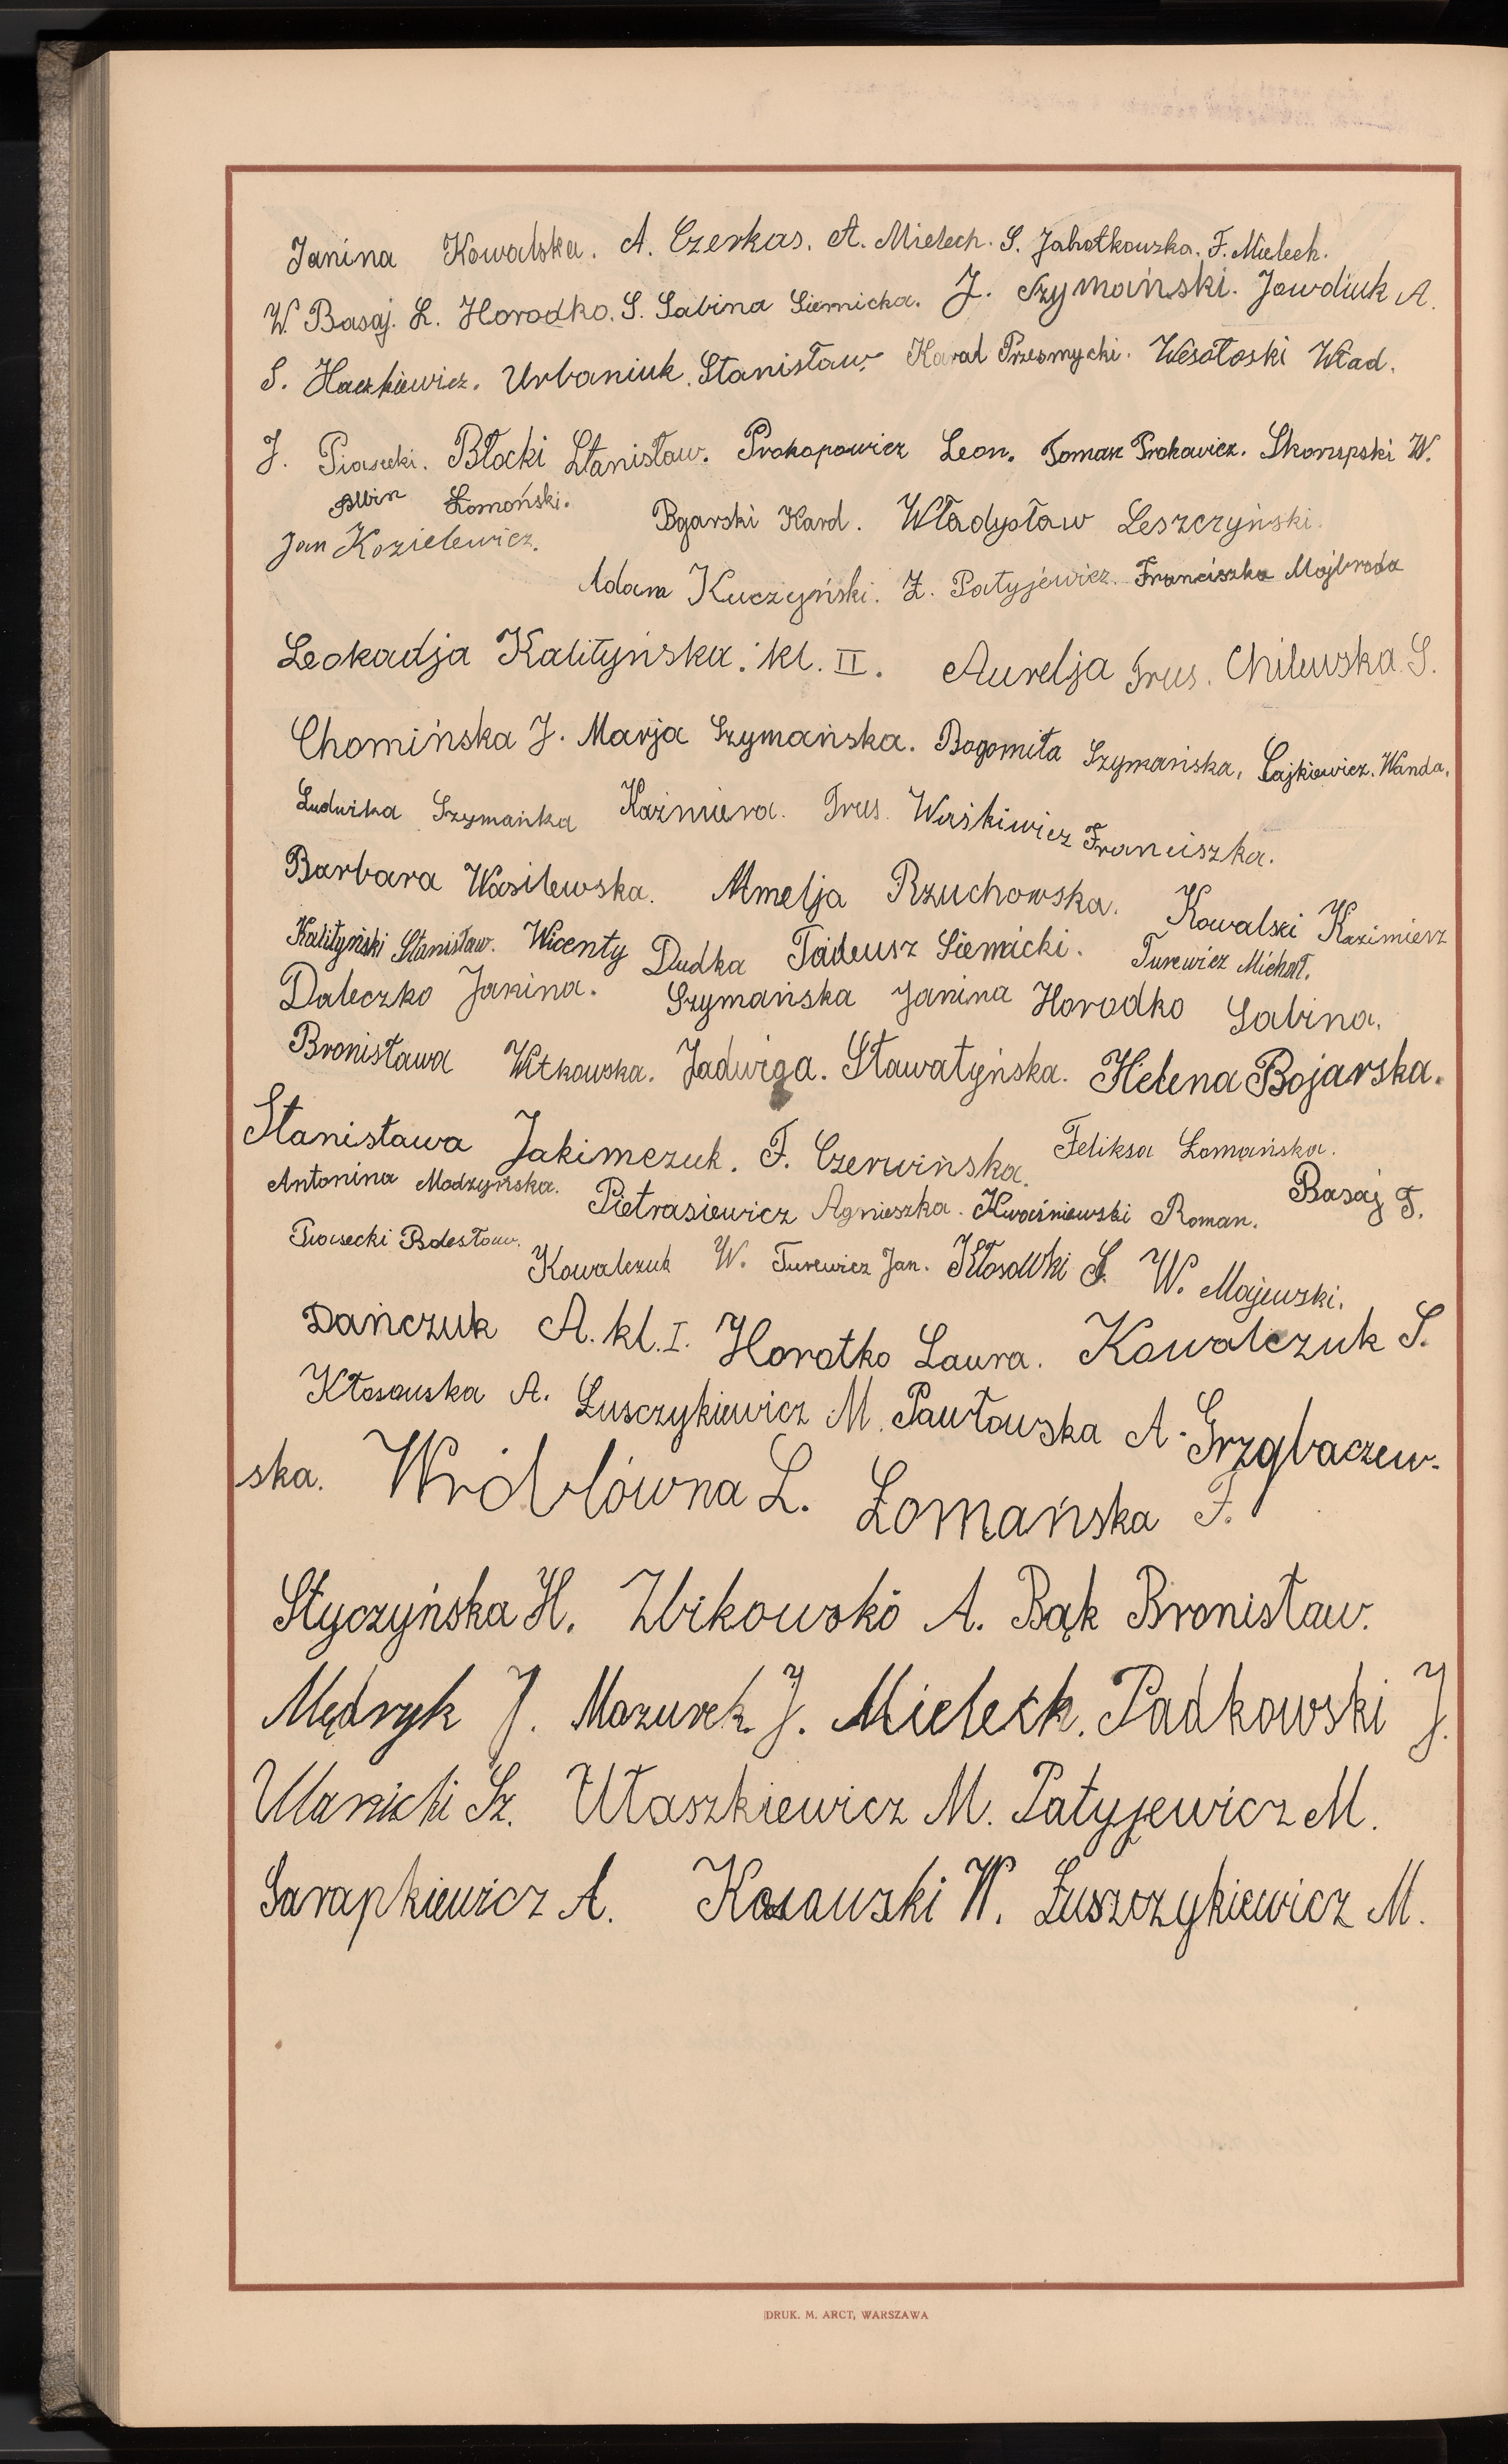 Janina Kowalska. A. Czerkas. A. Mielech. S. Jabołkowska. F. Mielech.
W. Basaj. L. Horodko. S. Sabina Siemicka. J. Szymański. Jowdiuk A.
S. Haczkiewicz. Urbaniuk. Stanisław. Karol Przesmycki. Wesołoski Wład.
J. Piasecki. Błocki Stanisław. Prokopowicz Leon. Tomasz Prokowicz. Skorupski W.
Albin Łomoński.
Jan Kozielewicz. Bgarski Karol. Władysław Leszczyński.
Adam Kuczyński. Z. Patyjewicz. Franciszka Mojbroda
Leokadja Kalityńska. kl. II. Aurelja Trus. Chilewska S.
Chomińska J. Marja Szymańska. Bogomiła Szymańska, Cajkiewicz. Wanda.
Ludwika Szymańka Kaźmiera. Trus. Waśkiwicz Franciszka.
Barbara Wasilewska. Amelja Rzuchowska. Kowalski Kazimierz
Kalityński Stanisław. Wicenty Dudka Tadeusz Siemicki. Turewicz Michał.
Daleczko Janina. Szymańska Janina Horodko Sabina.
Bronisława Witkowska. Jadwiga. Sławatyńska. Helena Bojarska.
Stanisława Jakimczuk. F. Czerwińska. Feliksa Łomańska.
Antonina Modzyńska. Pietrasiewicz Agnieszka. Kwaśniewski Roman. Basaj F.
Piasecki Bolesław. Kowalczuk W. Turewicz Jan. Kłosowki S. W. Majewski.
Dańczuk A. kl. I. Horotko Laura. Kowalczuk S.
Kłosowska A. Łusczykiewicz M. Pawłowska A. Grzybaczew-
ska. Wróblówna L. Łomańska F.
Styczyńska H. Zbikowskó A. Bąk Bronisław.
Mędryk J. Mazurek J. Mielech. Padkowski J.
Ulanicki Sz. Utaszkiewicz M. Patyjewicz M.
Sarapkiewicz A. Kosowski W. Łuszczykiewicz M.
DRUK. M. ARCT, WARSZAWA